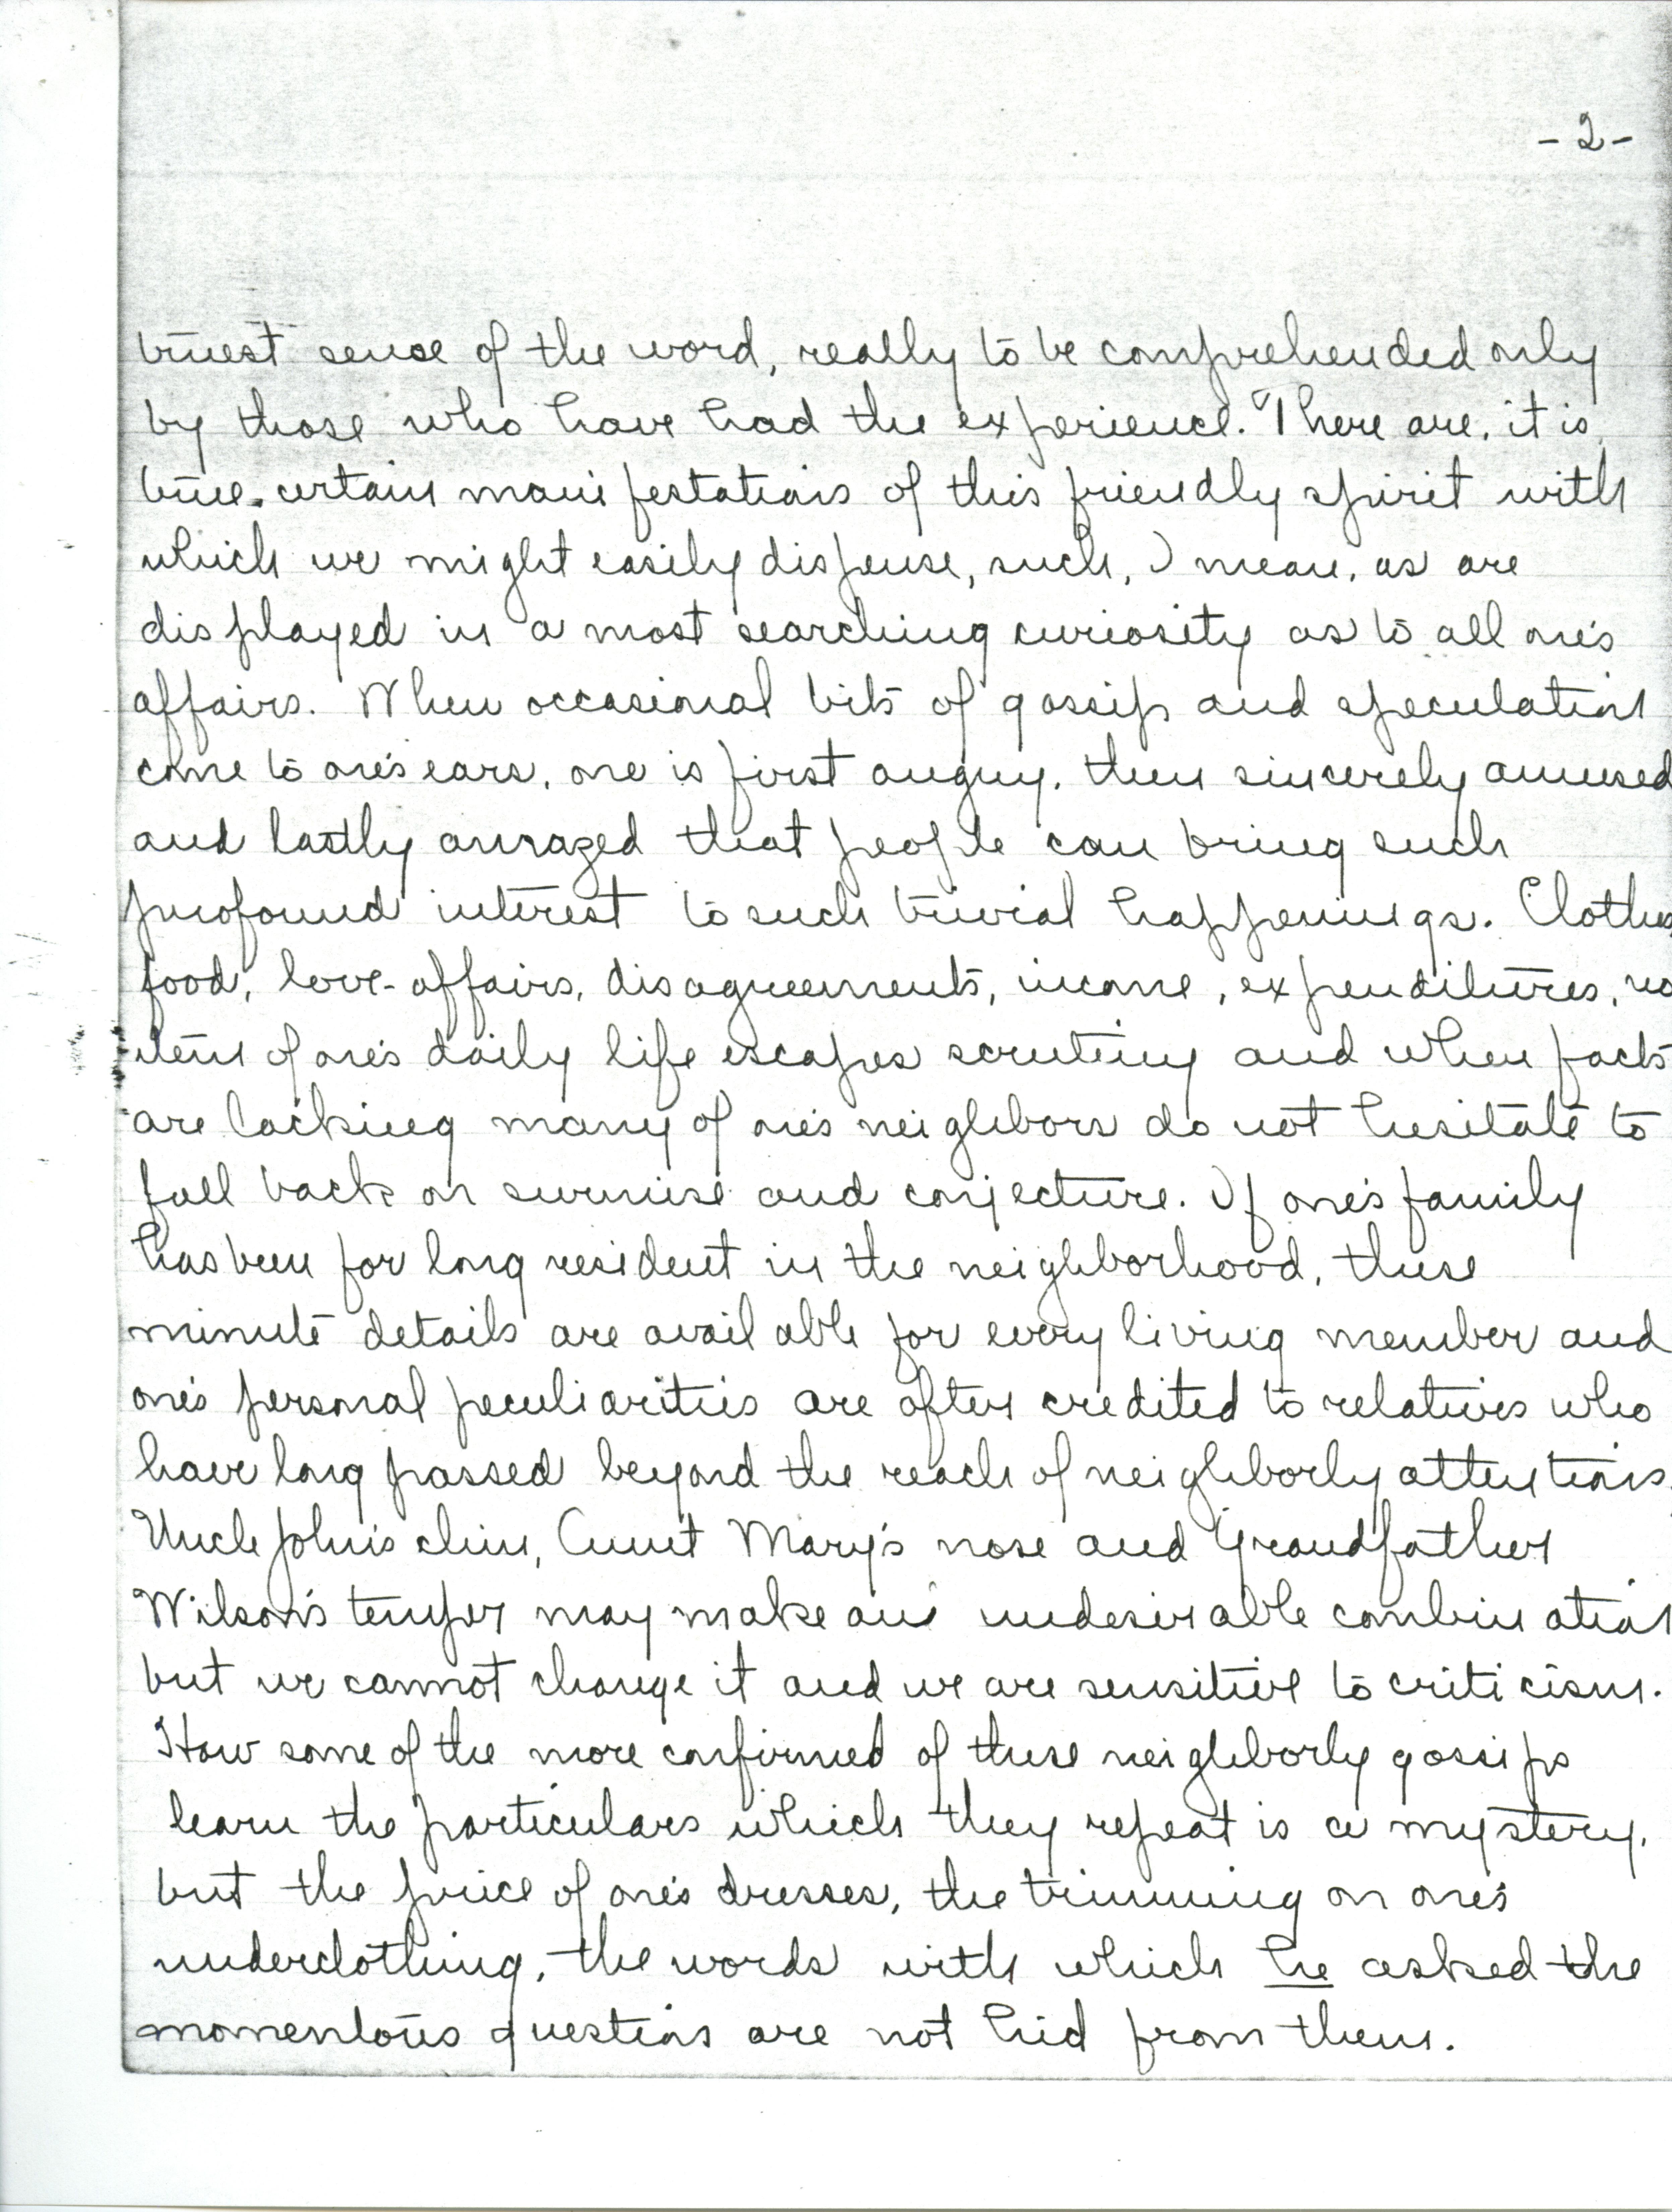 -2-
truest sense of the word, really to be comprehended only
by those who have had the experience. There are, it is
true, certain manifestations of this friendly spirit with
which we might easily dispense, such, I mean, as are
displayed in a most searching curiosity as to all one's
affairs. When occasional bits of gossip and speculation
come to one's ears, one is first angry, then sincerely amused
and lastly amazed that people can bring such
profound interest to such trivial happenings. Clothes,
food, love-affairs, disagreements, income, expenditures, no
item of one's daily life escapes scrutiny and when facts
are lacking many of one's neighbors do not hesitate to
fall back on surmise and conjecture. If one's family
has been for long resident in the neighborhood, these
minute details are available for every living member and
one's personal peculiarities are often credited to relatives who
have long passed beyond the reach of neighborly attentions.
Uncle John's chin, Aunt Mary's nose and Grandfather
Wilson's temper may make an undesirable combination
but we cannot change it and we are sensitive to criticism.
How some of the more confirmed of these neighborly gossips
learn the particulars which they repeat is a mystery,
but the price of one's dresses, the trimming on one's
underclothing, the words with which he asked the
momentous question are not hid from them.